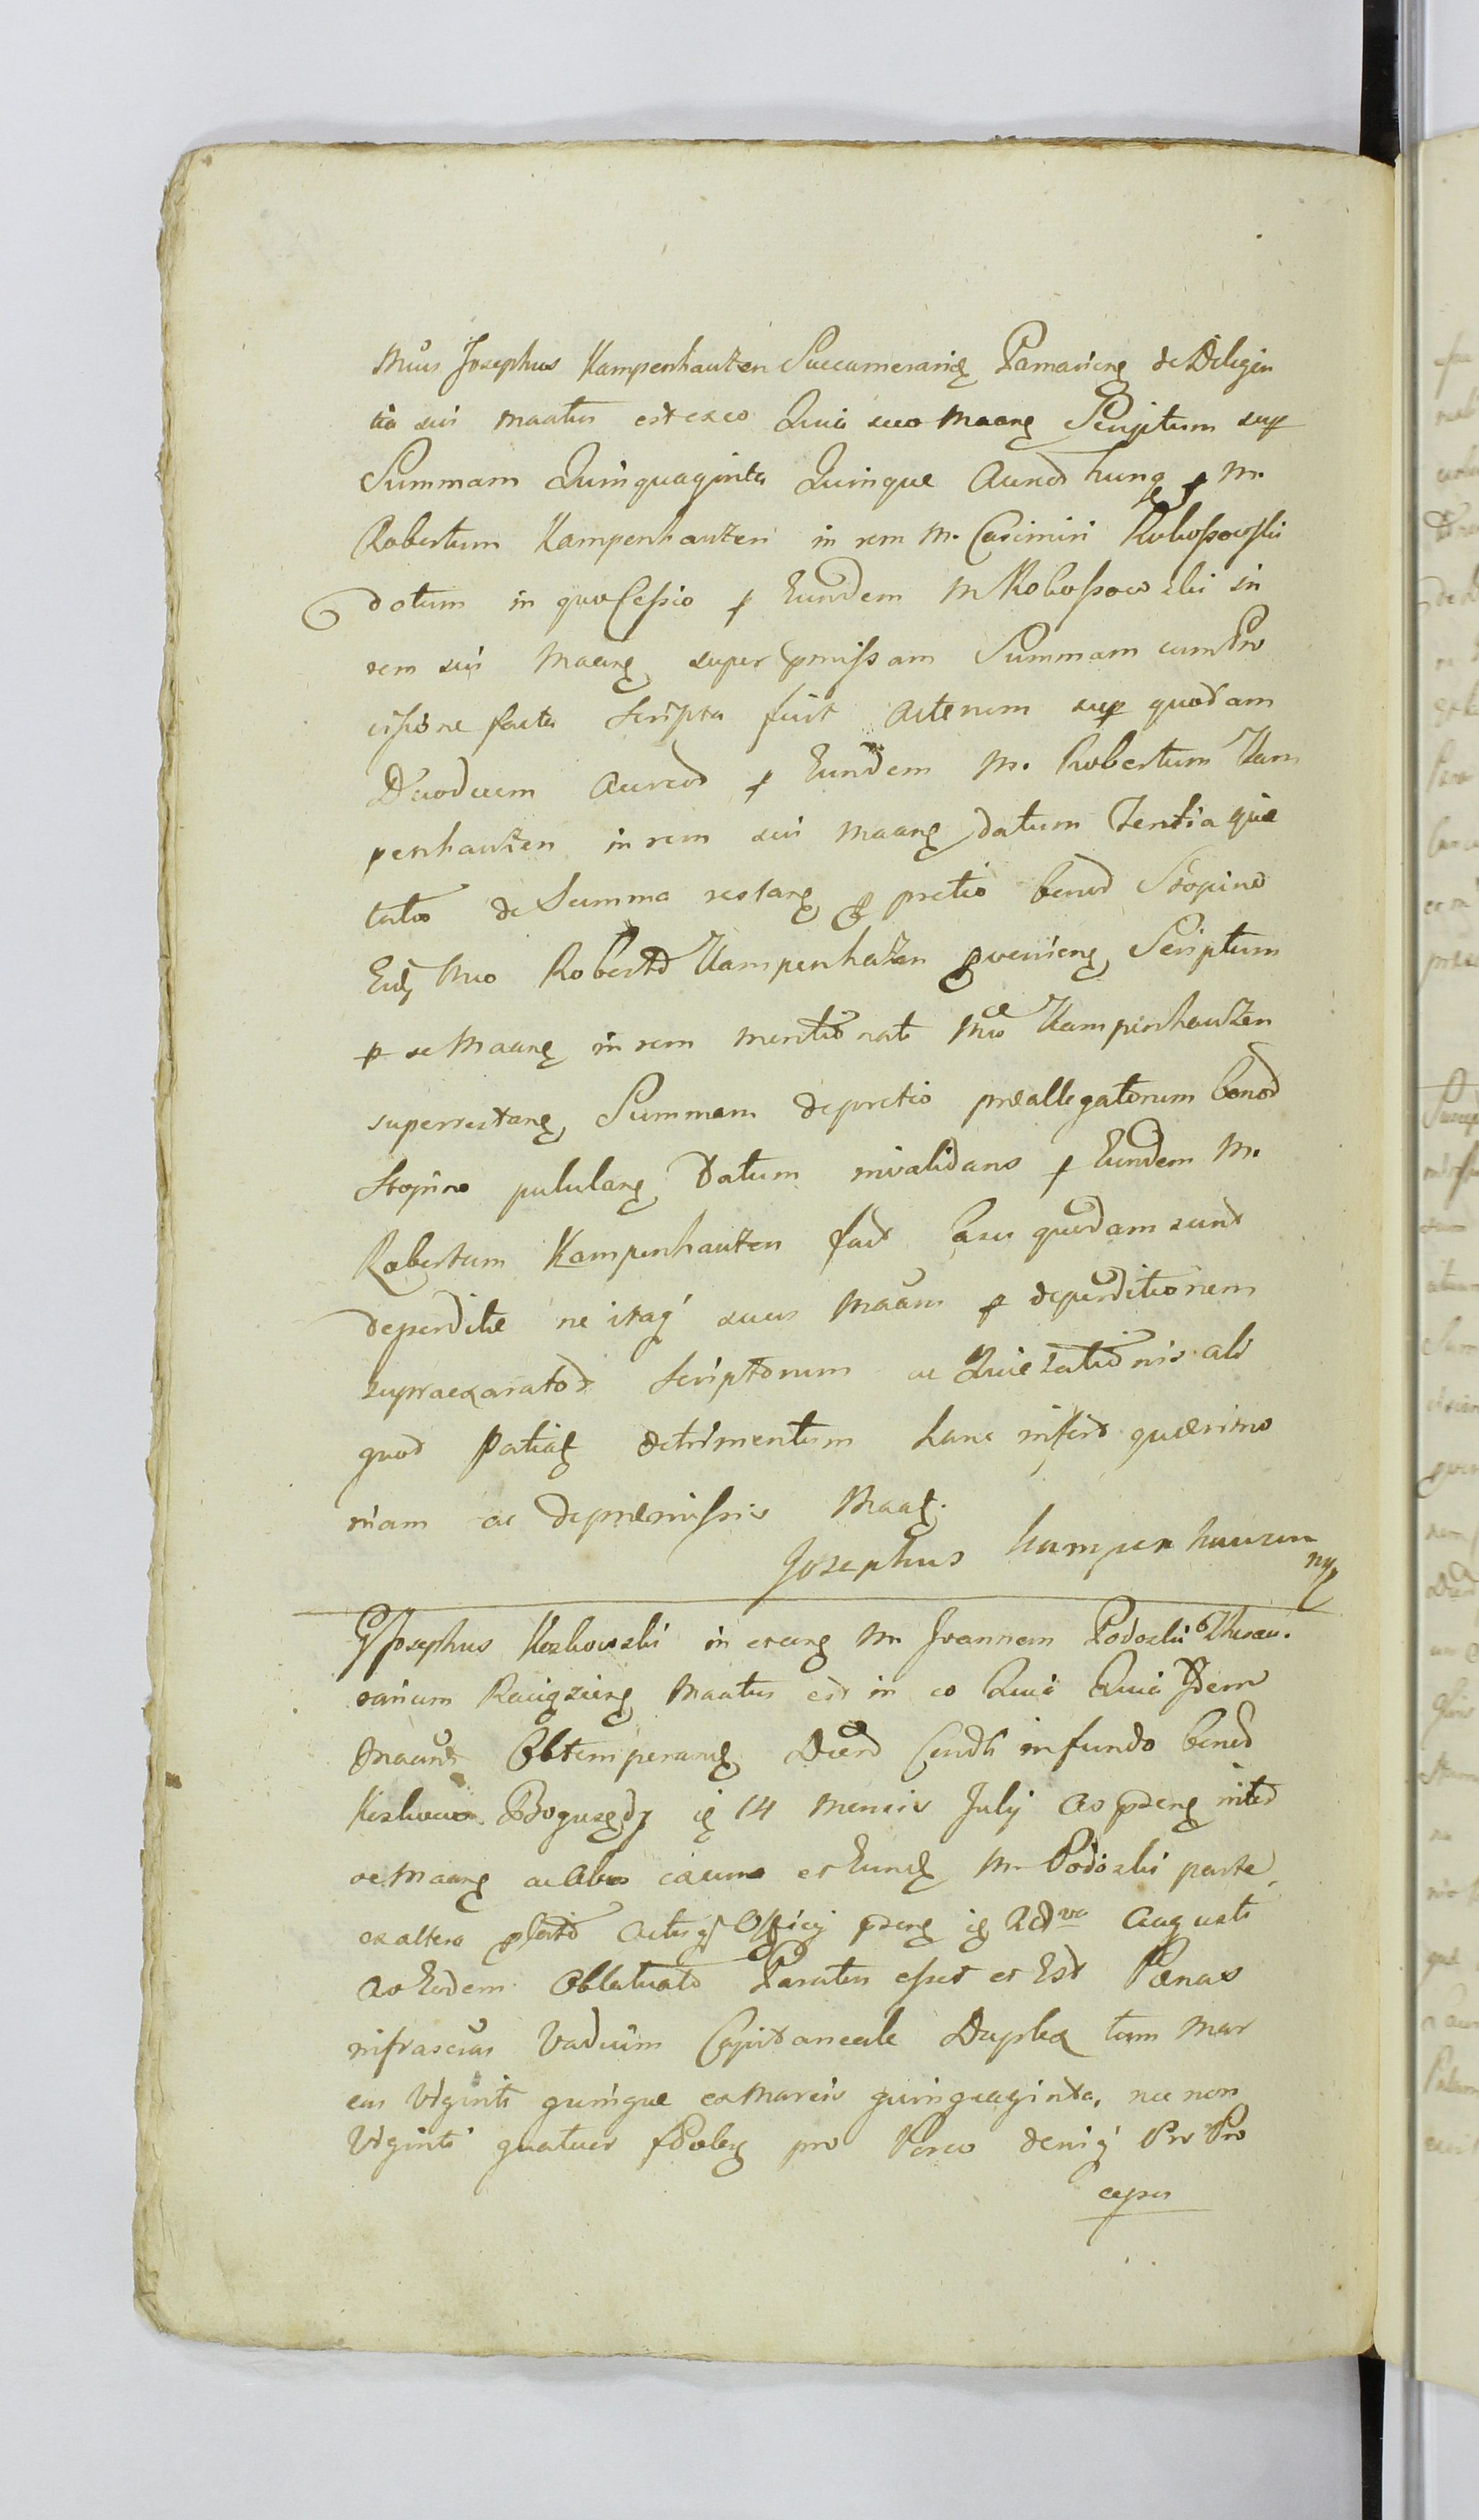 Mcus Josephus Kampenhauzen Succamerarig Parnavieng de Diligen
tia sui maatus est ex eo Quia suo maang Scriptum sup
Summam Quinquaginta Quinque Aureor hung p M.
Robertum Kampenhauzen in rem M. Casimiri Kobossowski
datum in quo Cessio p Eundem M Kobossowski in
rem sui Maang super pmissam Summam cum Pro
visione facta scripta fuit Alterum sup quodam
Duodecem Aureor p Eundem M. Robertum Kam
penhauzen in rem sui maang datum Tertia quie
tatio de Summa restang pretio bonor Stopino
Eid Mco Roberto Kampenhauzen pvenieng, Scriptum
p se Maang in rem mentionati Mci Kampenhauzen
superrestang, Summam de pretio præallegatorum bonor
Stopino pululang Datum invalidans p Eundem M.
Robertum Kampenhauzen fact casu quodam sunt
deperditæ ne itaq suus Maans p deperditionem
supraexarator Scriptorum ac Quietationis ali
quod Patiat detrimentum hanc infert quærimo
niam ac de præmissis Maat.
Josephus Kampenhauzen
mp
G Josephus Kozkowski in ereng M. Joannem Podoski Thesau
rarium Maatus est in eo Quia Quia Idem
Maans Obtemperang Decreto Condli in fundo bonor
14 Mensis Julij Ao pseng inter
se Maang ac alios ex una et Eung M. Podoski parte
ex altera plato Actisq Officij pseng Augusti
Ao Eodem Oblatuato Paratus esset et Est Pænas
infrascras Vadium Capitaneale Duplex tum Mar
cas Viginti quinque ex Marcis quinquaginta, nec non
Viginti quatuor pro Porco deniq Pro Pro
cessu